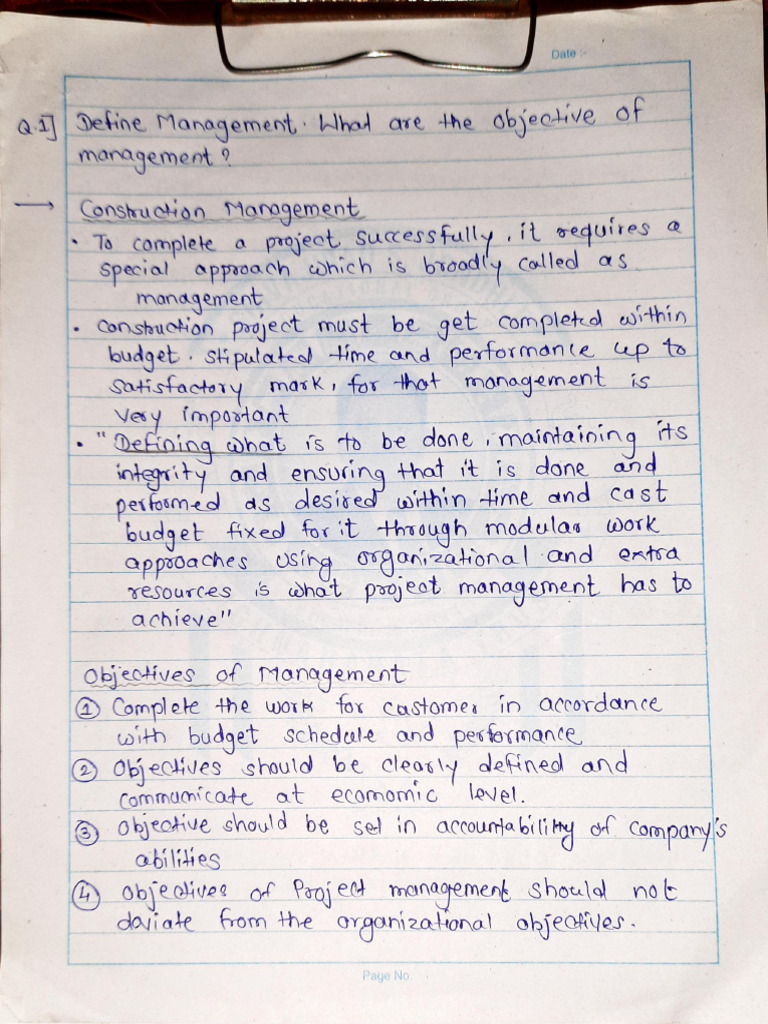 Date :-
Q.1] Define Management. What are the objective of
management?
→ Construction Management
• To complete a project successfully, it requires a
special approach which is broadly called as
management
• Construction project must be get completed within
budget. stipulated time and performance up to
satisfactory mark, for that management is
very important
• "Defining what is to be done, maintaining its
integrity and ensuring that it is done and
performed as desired within time and cast
budget fixed for it through modular work
approaches using organizational and extra
resources is what project management has to
achieve"
Objectives of Management
① Complete the work for castomer in accordance
with budget schedule and performance
② Objectives should be clearly defined and
communicate at ecomomic level.
③ Objective should be set in accountability of company's
abilities
④ Objectives of Project management should not
daviate from the organizational objectives.
Page No.